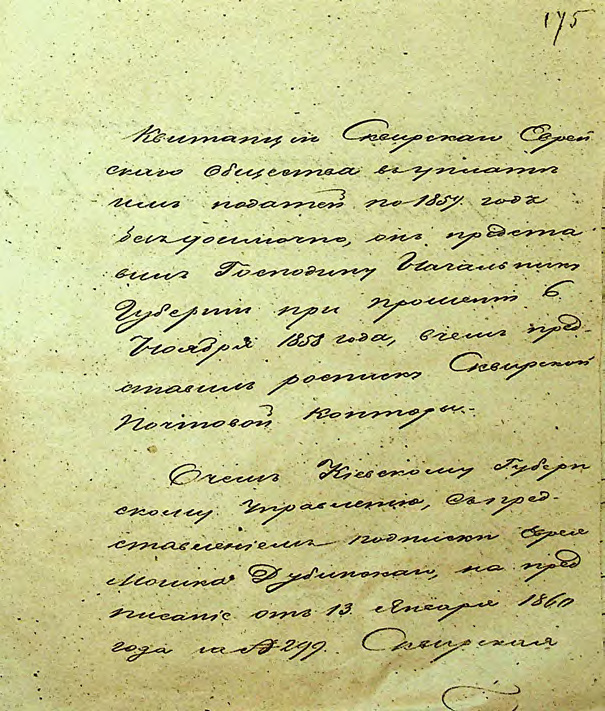 175
Квитанціи Сквирскаго Еврей
скаго Общества въ уплатѣ
имъ податей по 1857 годъ
бездоимочно, онъ предста
вилъ Господину Начальнику
Губерніи при прошеніи 6
Ноября 1858 года, в чемъ пред-
ставилъ росписку Сквирской
Почтовой Конторы.-
О чемъ Кіевскому Губерн
скому Управленію, съ пред-
ставленіемъ подписки Еврея
Мошка Дубинскаго, на пред
писаніе отъ 13 Января 1860
года за № 299. Сквирская